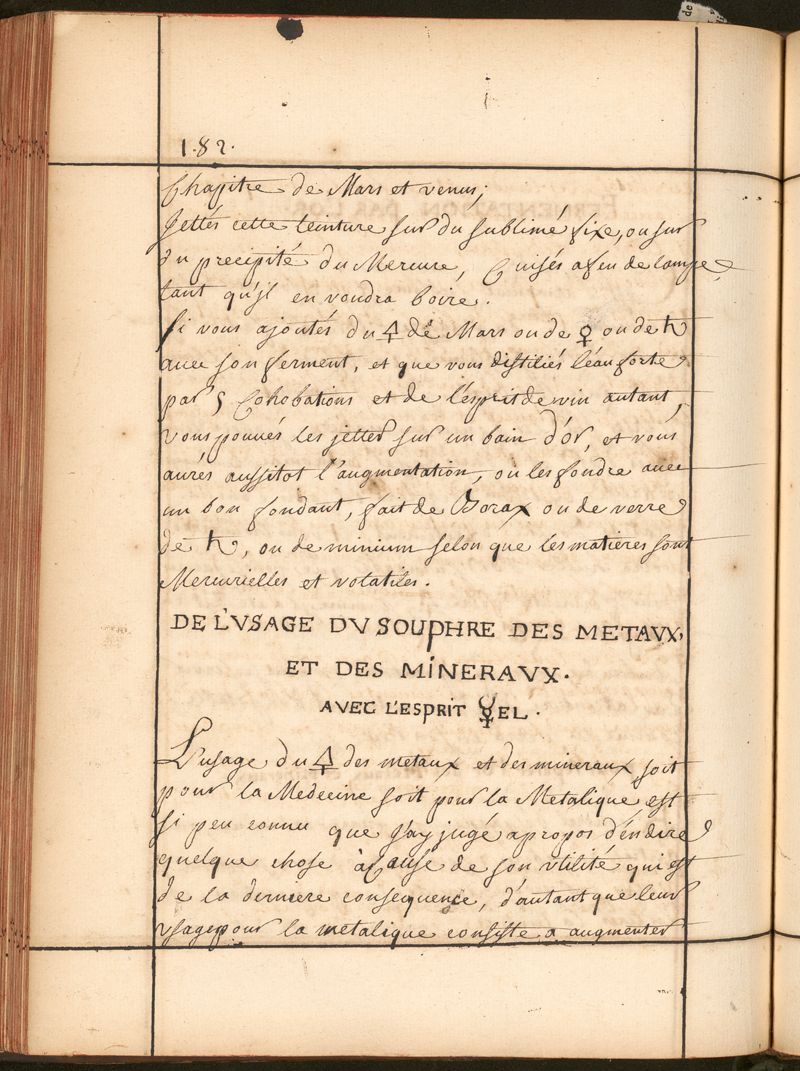 1.82.
Chapitre de Mars et venus;
Jettés cette teinture sur du sublimé fixe, ou sur
du precipité du Mercure, Cuisés a feu de lampe,
tant qu'jl en voudra boire.
Si vous ajoutés du 🜍 de Mars ou de ♀ ou de ♄
avec son ferment, et que vous distiliés l'eau forte
par 5 Cohobations et de l'esprit de vin autant,
vous pouvés les jetter sur un bain d'or, et vous
aurés aussitot l'augmentation, ou les fondre avec
un bon fondant, fait de Borax ou de verre
de ♄, ou de minium selon que les matieres sont
Mercurielles et volatiles.
DE L'VSAGE DV SOUPHRE DES METAVX,
ET DES MINERAVX.
AVEC L'ESPRIT ☿EL.
L'usage du 🜍 des metaux et des mineraux soit
pour la Medecine soit pour la Metalique est
si peu connu que j'ay jugé apropos d'en dire
quelque chose à Cause de son vtilité qui est
de la derniere consequence, d'autant que leur
vsage pour la metalique consiste a augmenter